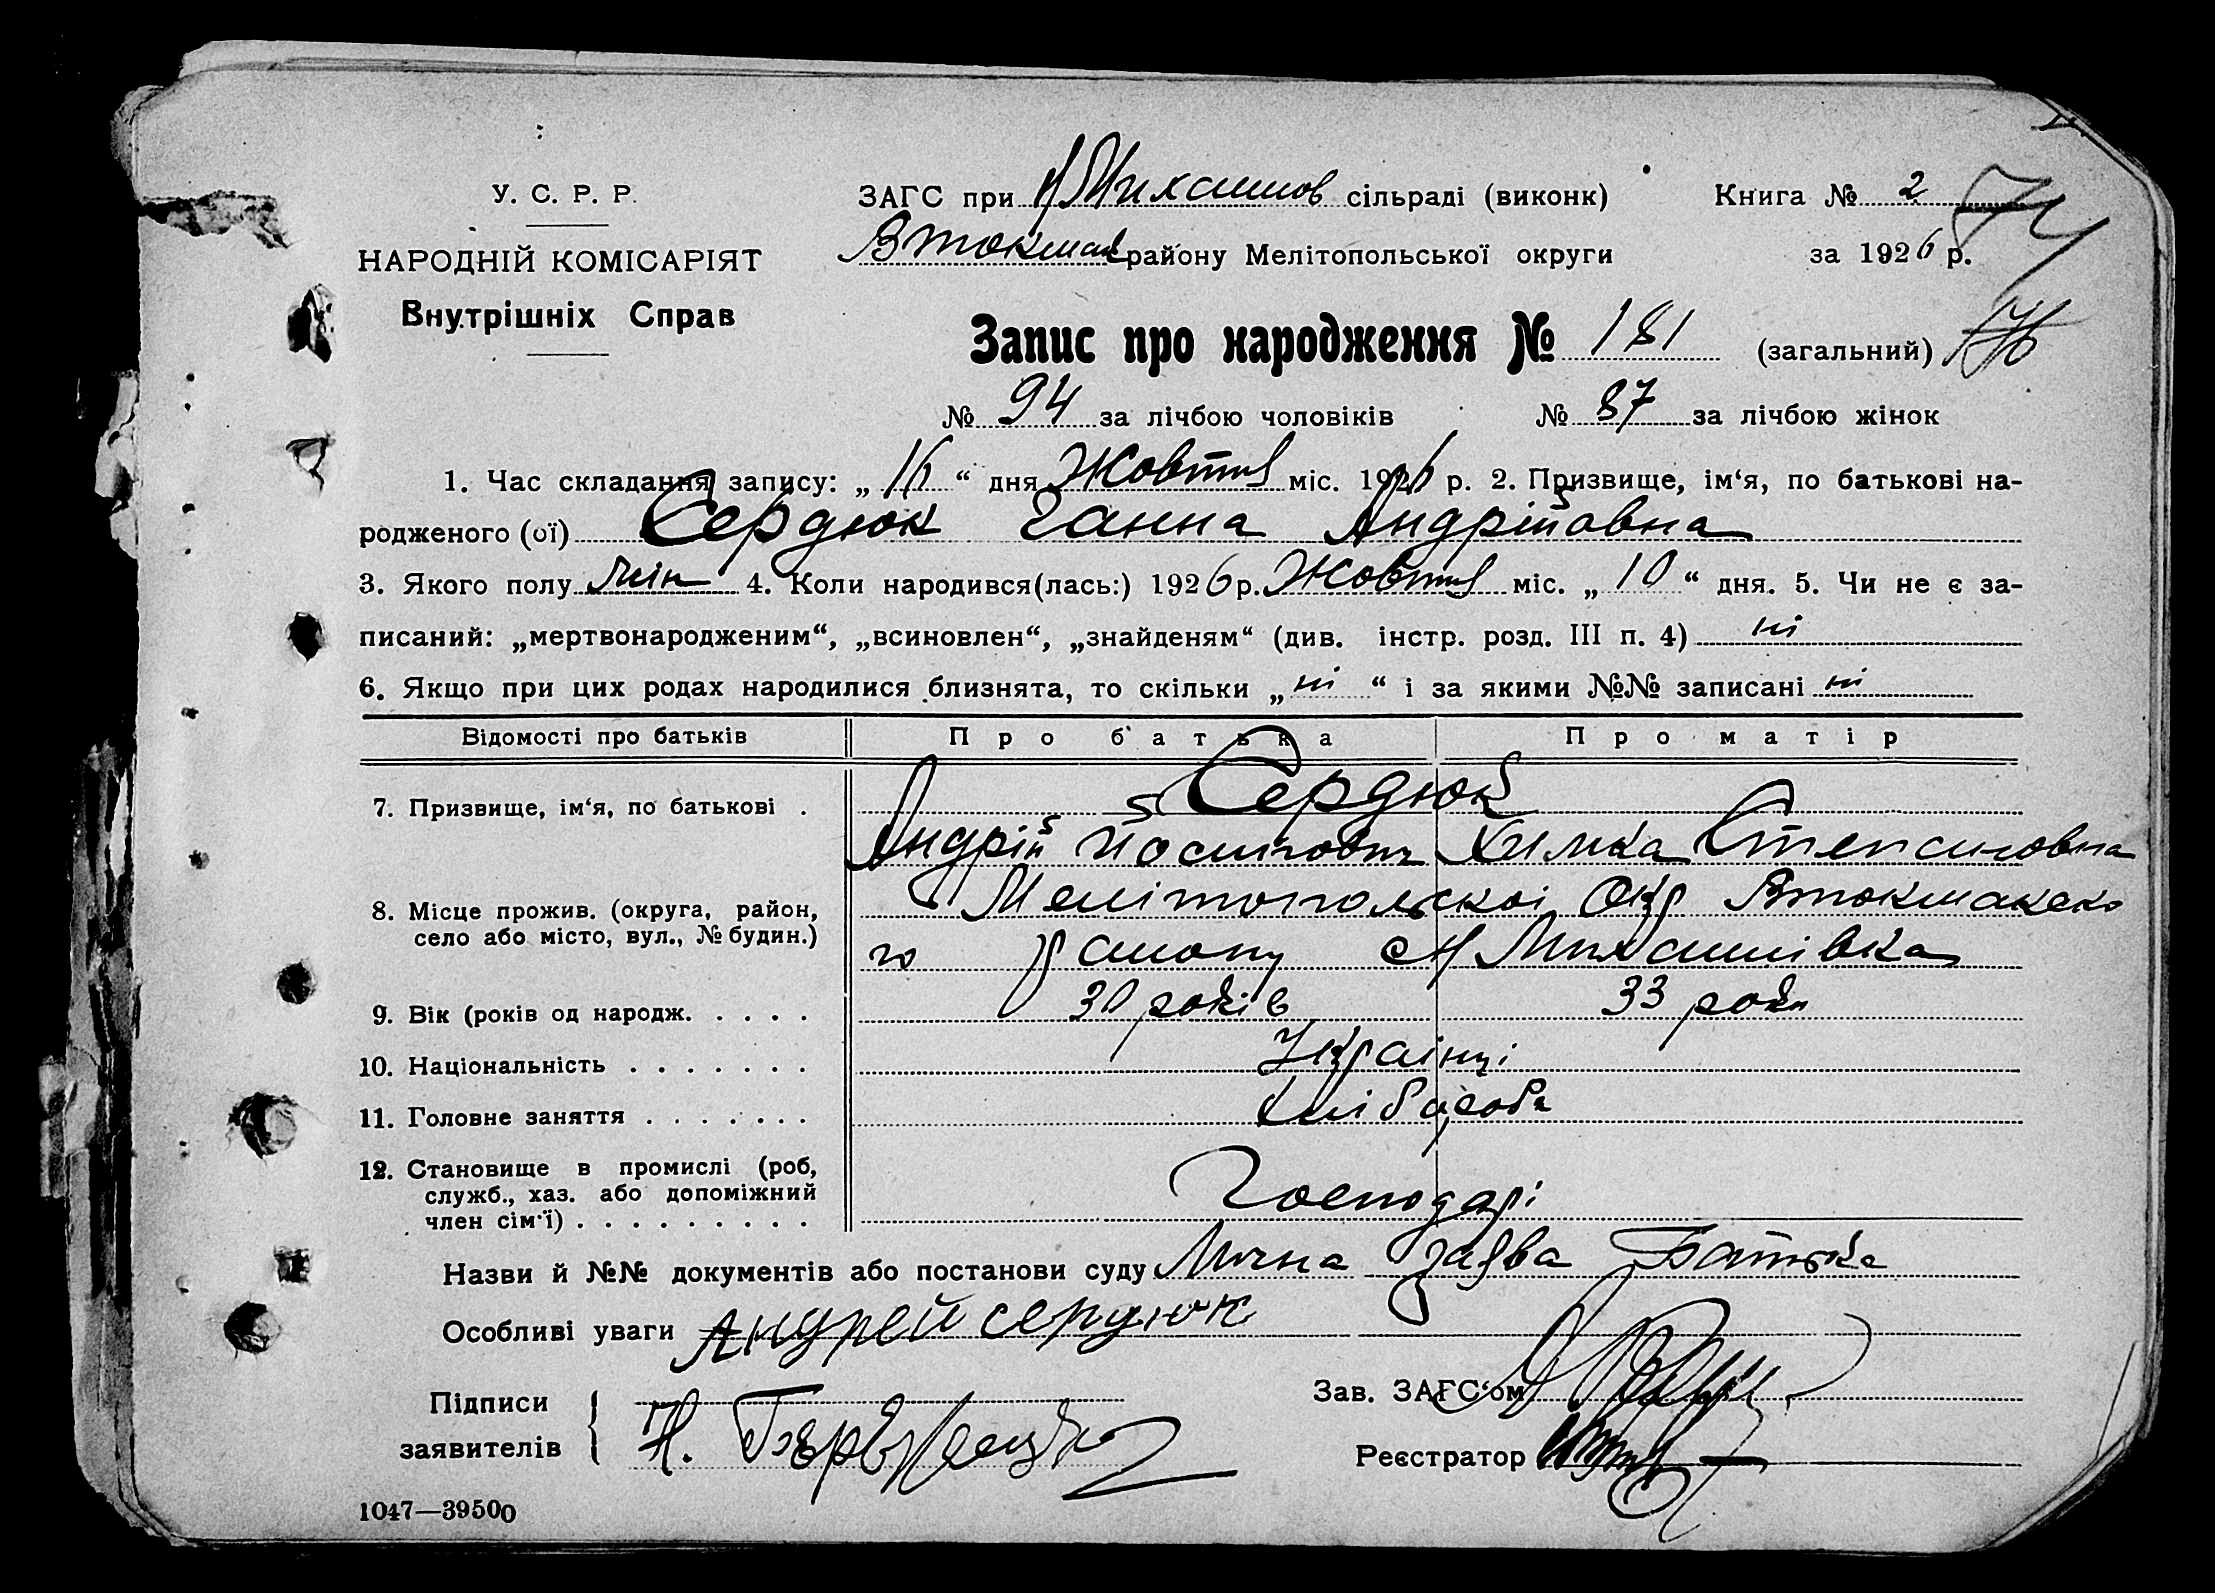 У. С. Р. Р.
НАРОДНІЙ КОМІСАРІЯТ
Внутрішніх Справ
ЗАГС при Н Михайлов сільраді (виконк) Книга № 2 74
Втокмак району Мелітопольської округи за 1926 р.
Запис про народження № 181 (загальний)
№ 94 за лічбою чоловіків № 87 за лічбою жінок
1. Час складання запису: „16“ дня Жовтня міс. 1926 р. 2. Призвище, ім‘я, по батькові на-
родженого (ої) Сердюк Ганна Андрійовна
3. Якого полу жін 4. Коли народився(лась:) 1926 р. Жовтня міс. „10“ дня. 5. Чи не є за-
писаний: „мертвонародженим“, „всиновлен“, „знайденям“ (див. інстр. розд. III п. 4) ні
6. Якщо при цих родах народилися близнята, то скільки „ні“ і за якими №№ записані ні
Відомості про батьків Про батька Про матір
7. Призвище, ім‘я, по батькові . Сердюк
Андрій Йосипович Химка Степановна
8. Місце прожив. (округа, район, Мелітопольскоі Окр Втокмакско
село або місто, вул., № будин.) го району с Н Михайлівка
9. Вік (років од народж. . . . . 30 років 33 роки
10. Національність . . . . . . . Українці
11. Головне заняття . . . . . . . Хлібороби
12. Становище в промислі (роб,
служб., хаз. або допоміжний
член сім‘ї) . . . . . . . . . Господарі
Назви й №№ документів або постанови суду Лична заява Батька
Особливі уваги Андрей сердюк
Підписи
заявителів
Н.
Зав. ЗАГС‘ом
Реєстратор
1047—39500